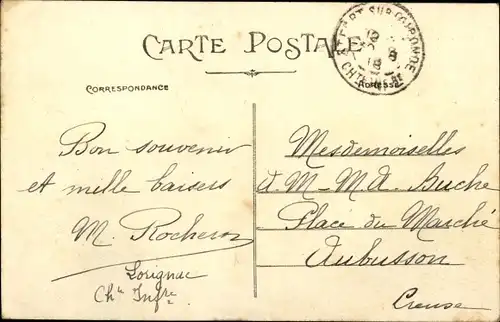 CARTE POSTALE
CORRESPONDANCE
Adresse
Bon souvenir
et mille baisers
M. Rocheron
Lorignac
Chte Infre
Mesdemoiselles
d. M – M A. Buche
Place du Marché
Aubusson
Creuse